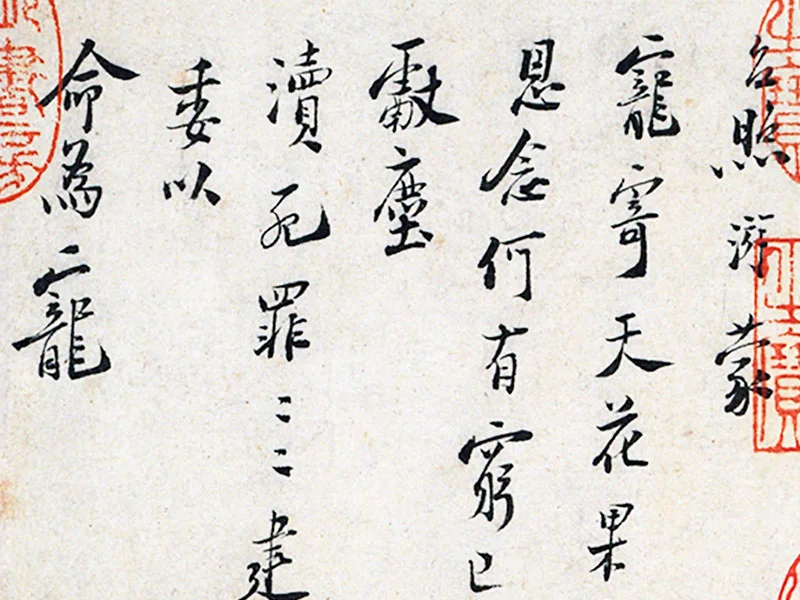 照游蒙
寵寄天花果
恩念何有窮已
塵
瀆死罪〻〻建
委以
命為寵